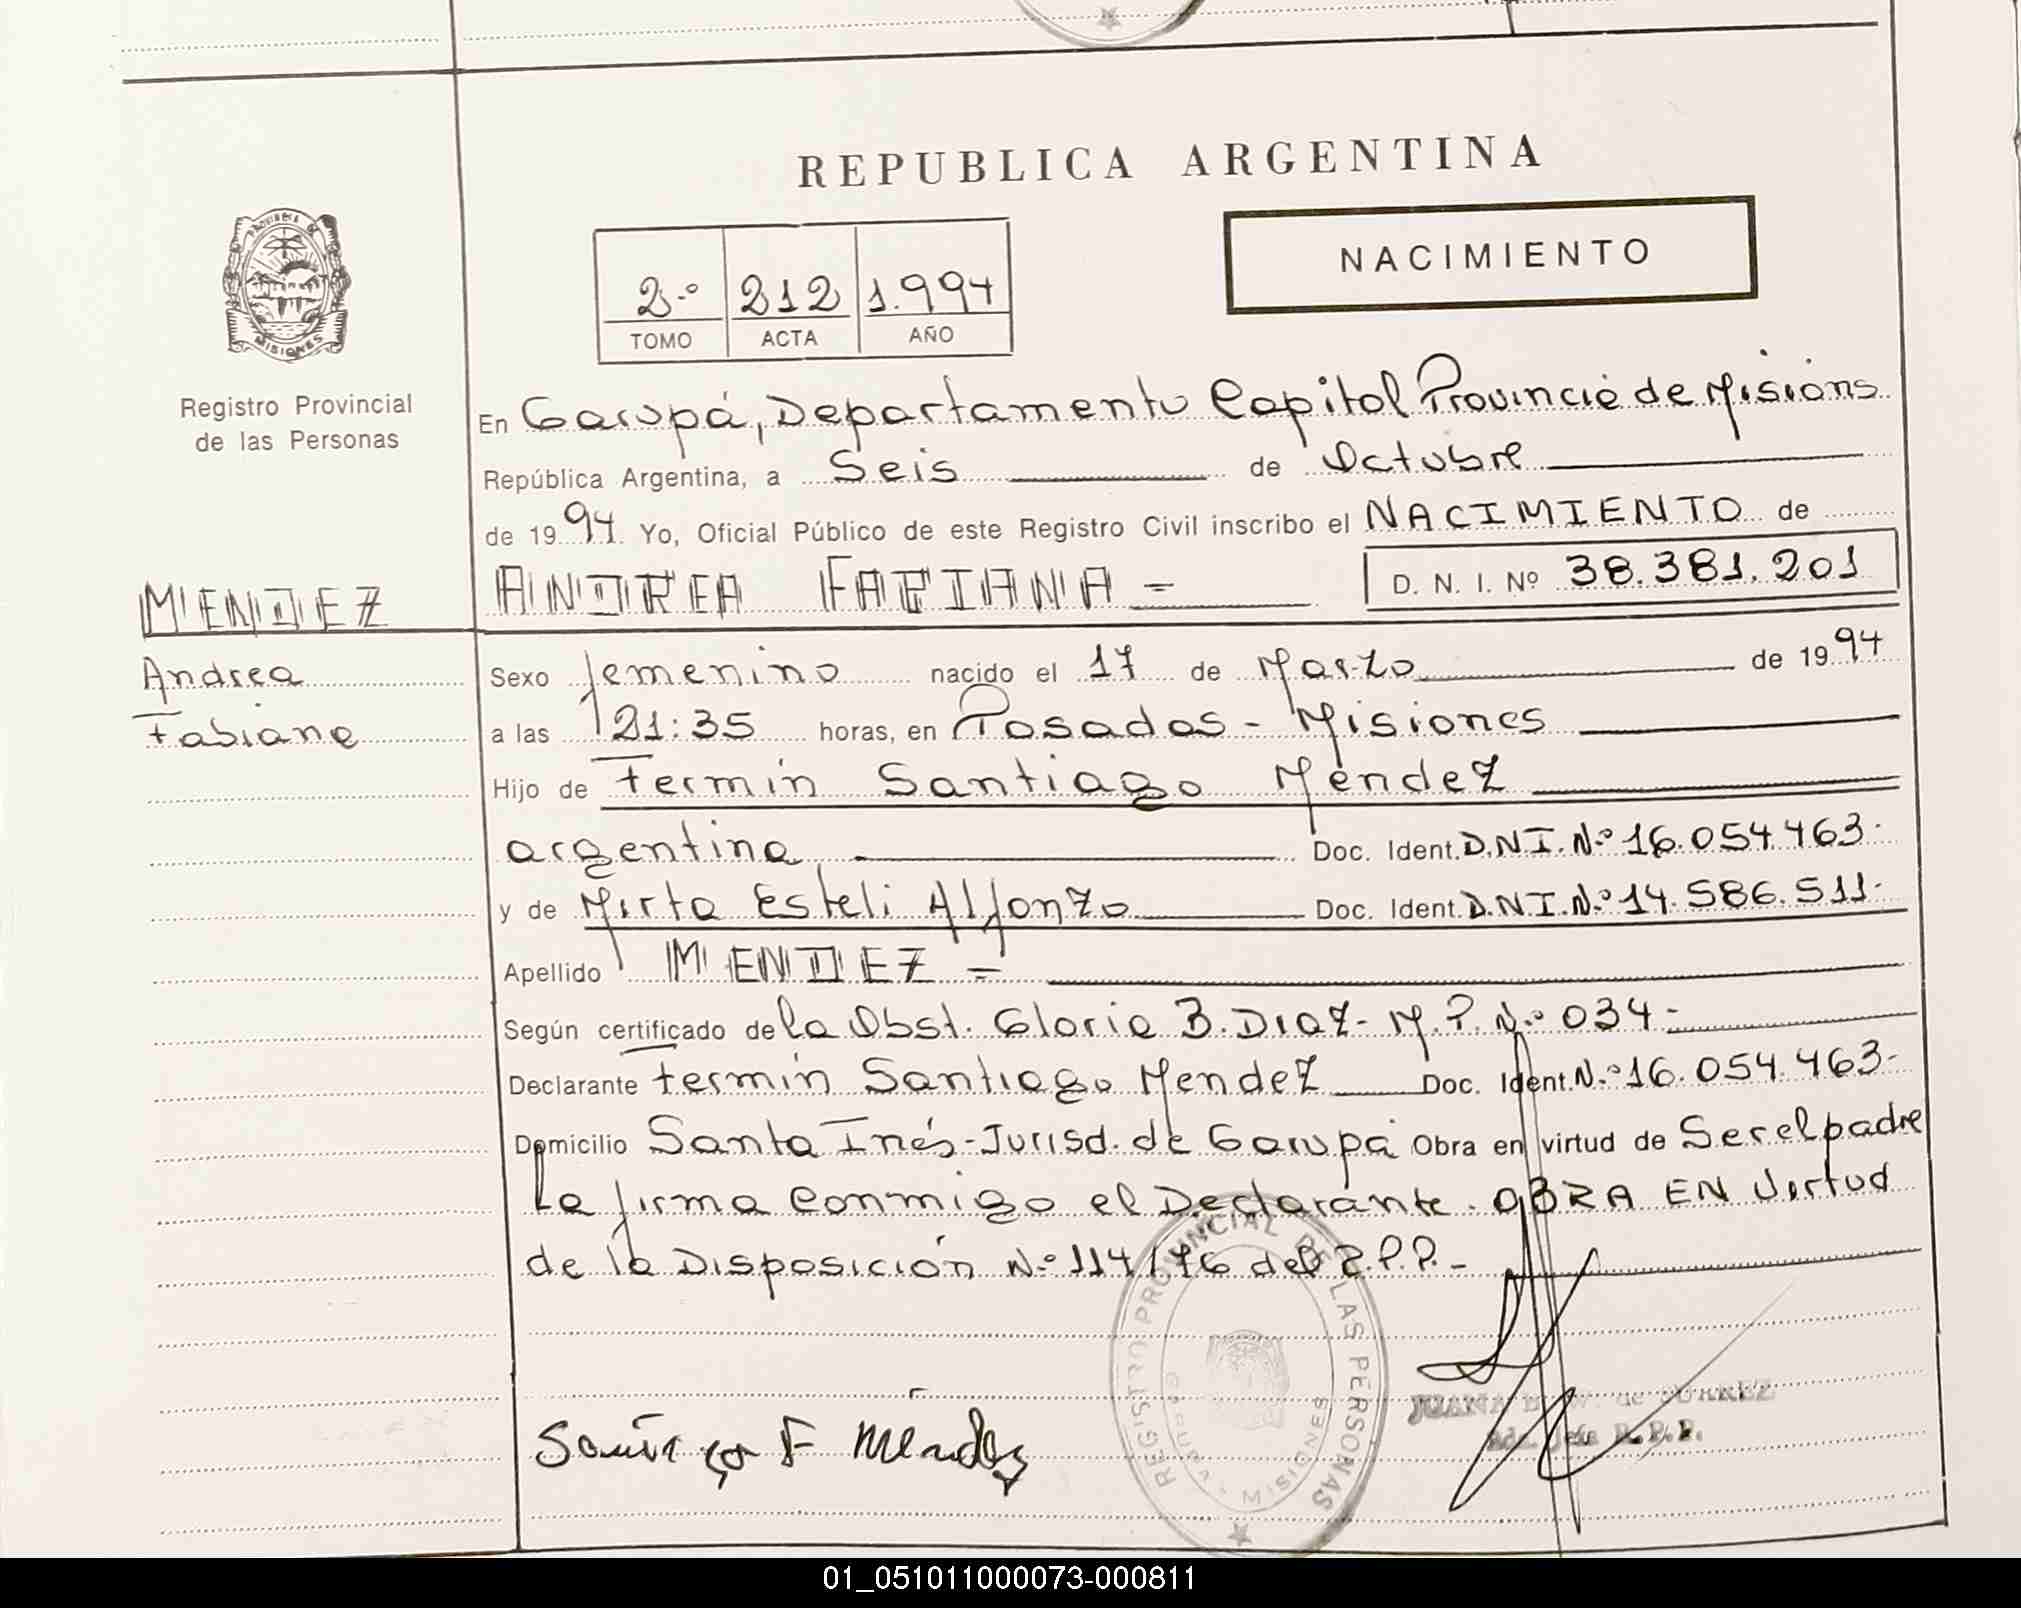 REPUBLICA ARGENTINA
NACIMIENTO
2º 212 1.994
TOMO ACTA AÑO
PROVINCIA DE
MISIONES
Registro Provincial
de las Personas
En Garupá, Departamento Capital Provincia de Misions
República Argentina, a Seis de Octubre
de 1994 Yo, Oficial Público de este Registro Civil inscribo el NACIMIENTO de
MENDEZ
ANDREA FABIANA =
D. N. I. Nº 38.381.201
Andrea
Fabiana
Sexo femenino nacido el 17 de Marzo de 1994
a las 21:35 horas, en Posadas - Misiones
Hijo de Fermín Santiago Méndez
argentina Doc. Ident. D.N.I. Nº 16.054.463.
y de Mirta Esteli Alfonzo Doc. Ident. D.N.I. Nº 14.586.511.
Apellido MENDEZ =
Según certificado de la Obst. Gloria B. Diaz - M.P. Nº 034 -
Declarante Fermín Santiago Mendez Doc. Ident. Nº 16.054.463 -
Domicilio Santa Inés - Jurisd. de Garupá Obra en virtud de Ser el padre
Le firma conmigo el Declarante. OBRA EN Virtud
de la Disposición Nº 114/76 del R.P.P. -
REGISTRO PROVINCIAL DE LAS PERSONAS
GARUPA - MISIONES
JUANA de
Jefa R.P.P.
F Méndez
01_051011000073-000811